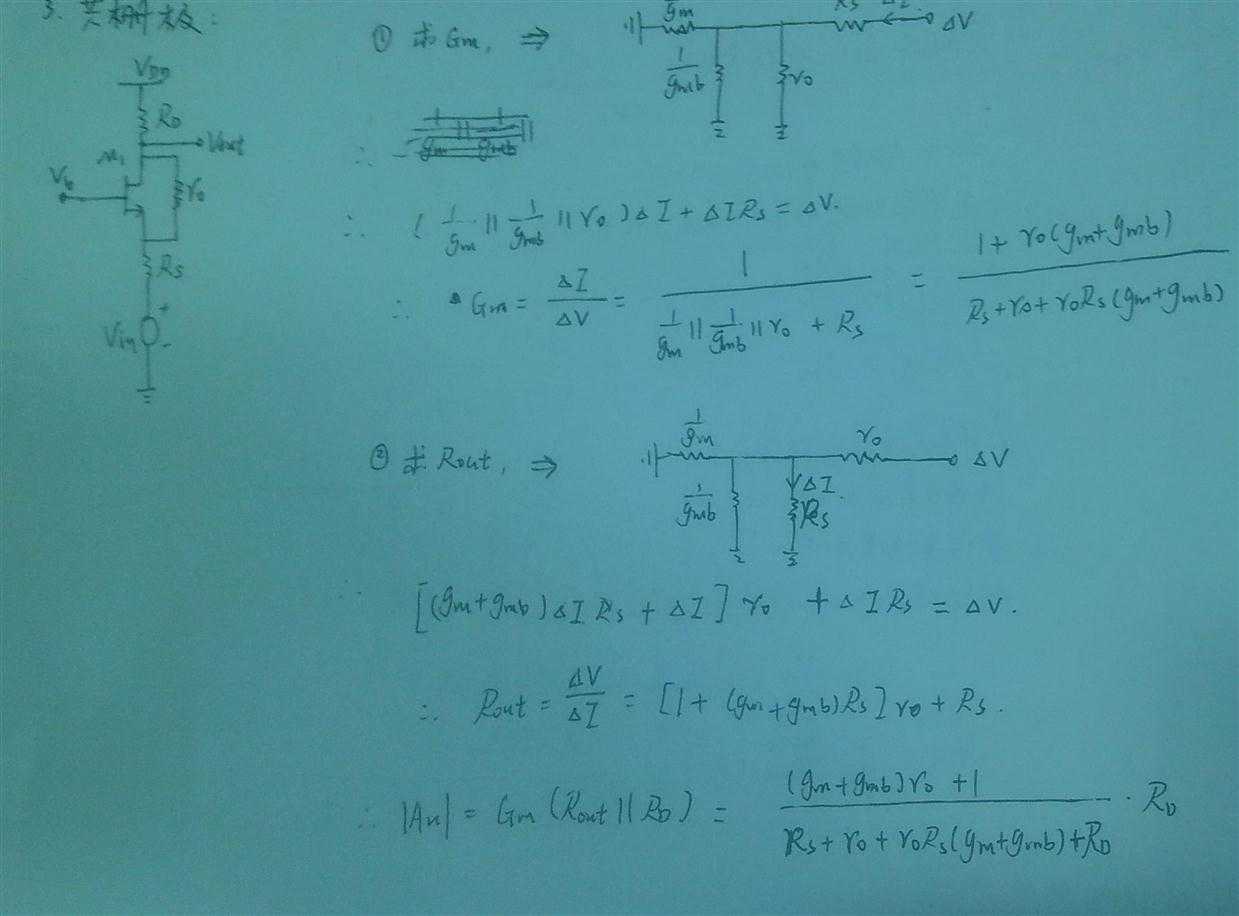 3. 共栅极:
VDD
RD
Vout
M1
Vb
r0
Rs
+
Vin
-
① 求Gm, ⇒
gm
Rs
ΔI
ΔV
1/gmb
r0
∴
∴ ( 1/gm || 1/gmb || r0 ) ΔI + ΔI Rs = ΔV.
∴ Gm = ΔI/ΔV = 1/(1/gm || 1/gmb || r0 + Rs) = (1 + r0(gm+gmb))/(Rs + r0 + r0Rs(gm+gmb))
② 求Rout, ⇒
1/gm
r0
ΔV
1/gmb
ΔI
Rs
[(gm+gmb)ΔI Rs + ΔI] r0 + ΔI Rs = ΔV.
∴ Rout = ΔV/ΔI = [1 + (gm+gmb)Rs] r0 + Rs.
∴ |Au| = Gm (Rout || RD) = ((gm+gmb)r0 + 1)/(Rs + r0 + r0Rs(gm+gmb) + RD) · RD